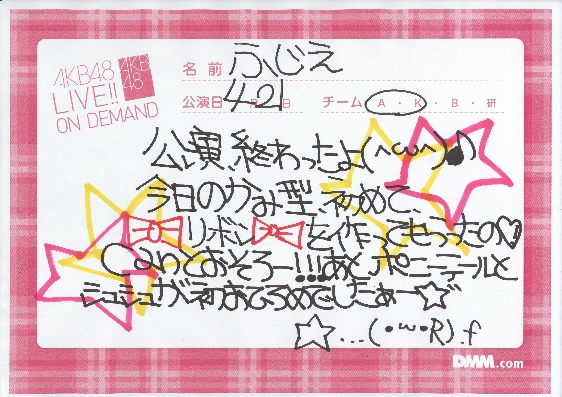 AKB48
LIVE!!
ON DEMAND
AKB
48
名前 ふじえ
公演日 4 21 日 チーム A・K・B・研
公演終わったよ(^ω^)♪
今日のかみ型、初めて
リボンを作ってもらったの♡
とおそろー!!!あと、ポニーテールと
シュシュが初おひろめでしたぁー☆
☆...(・ω・R).f
DMM.com